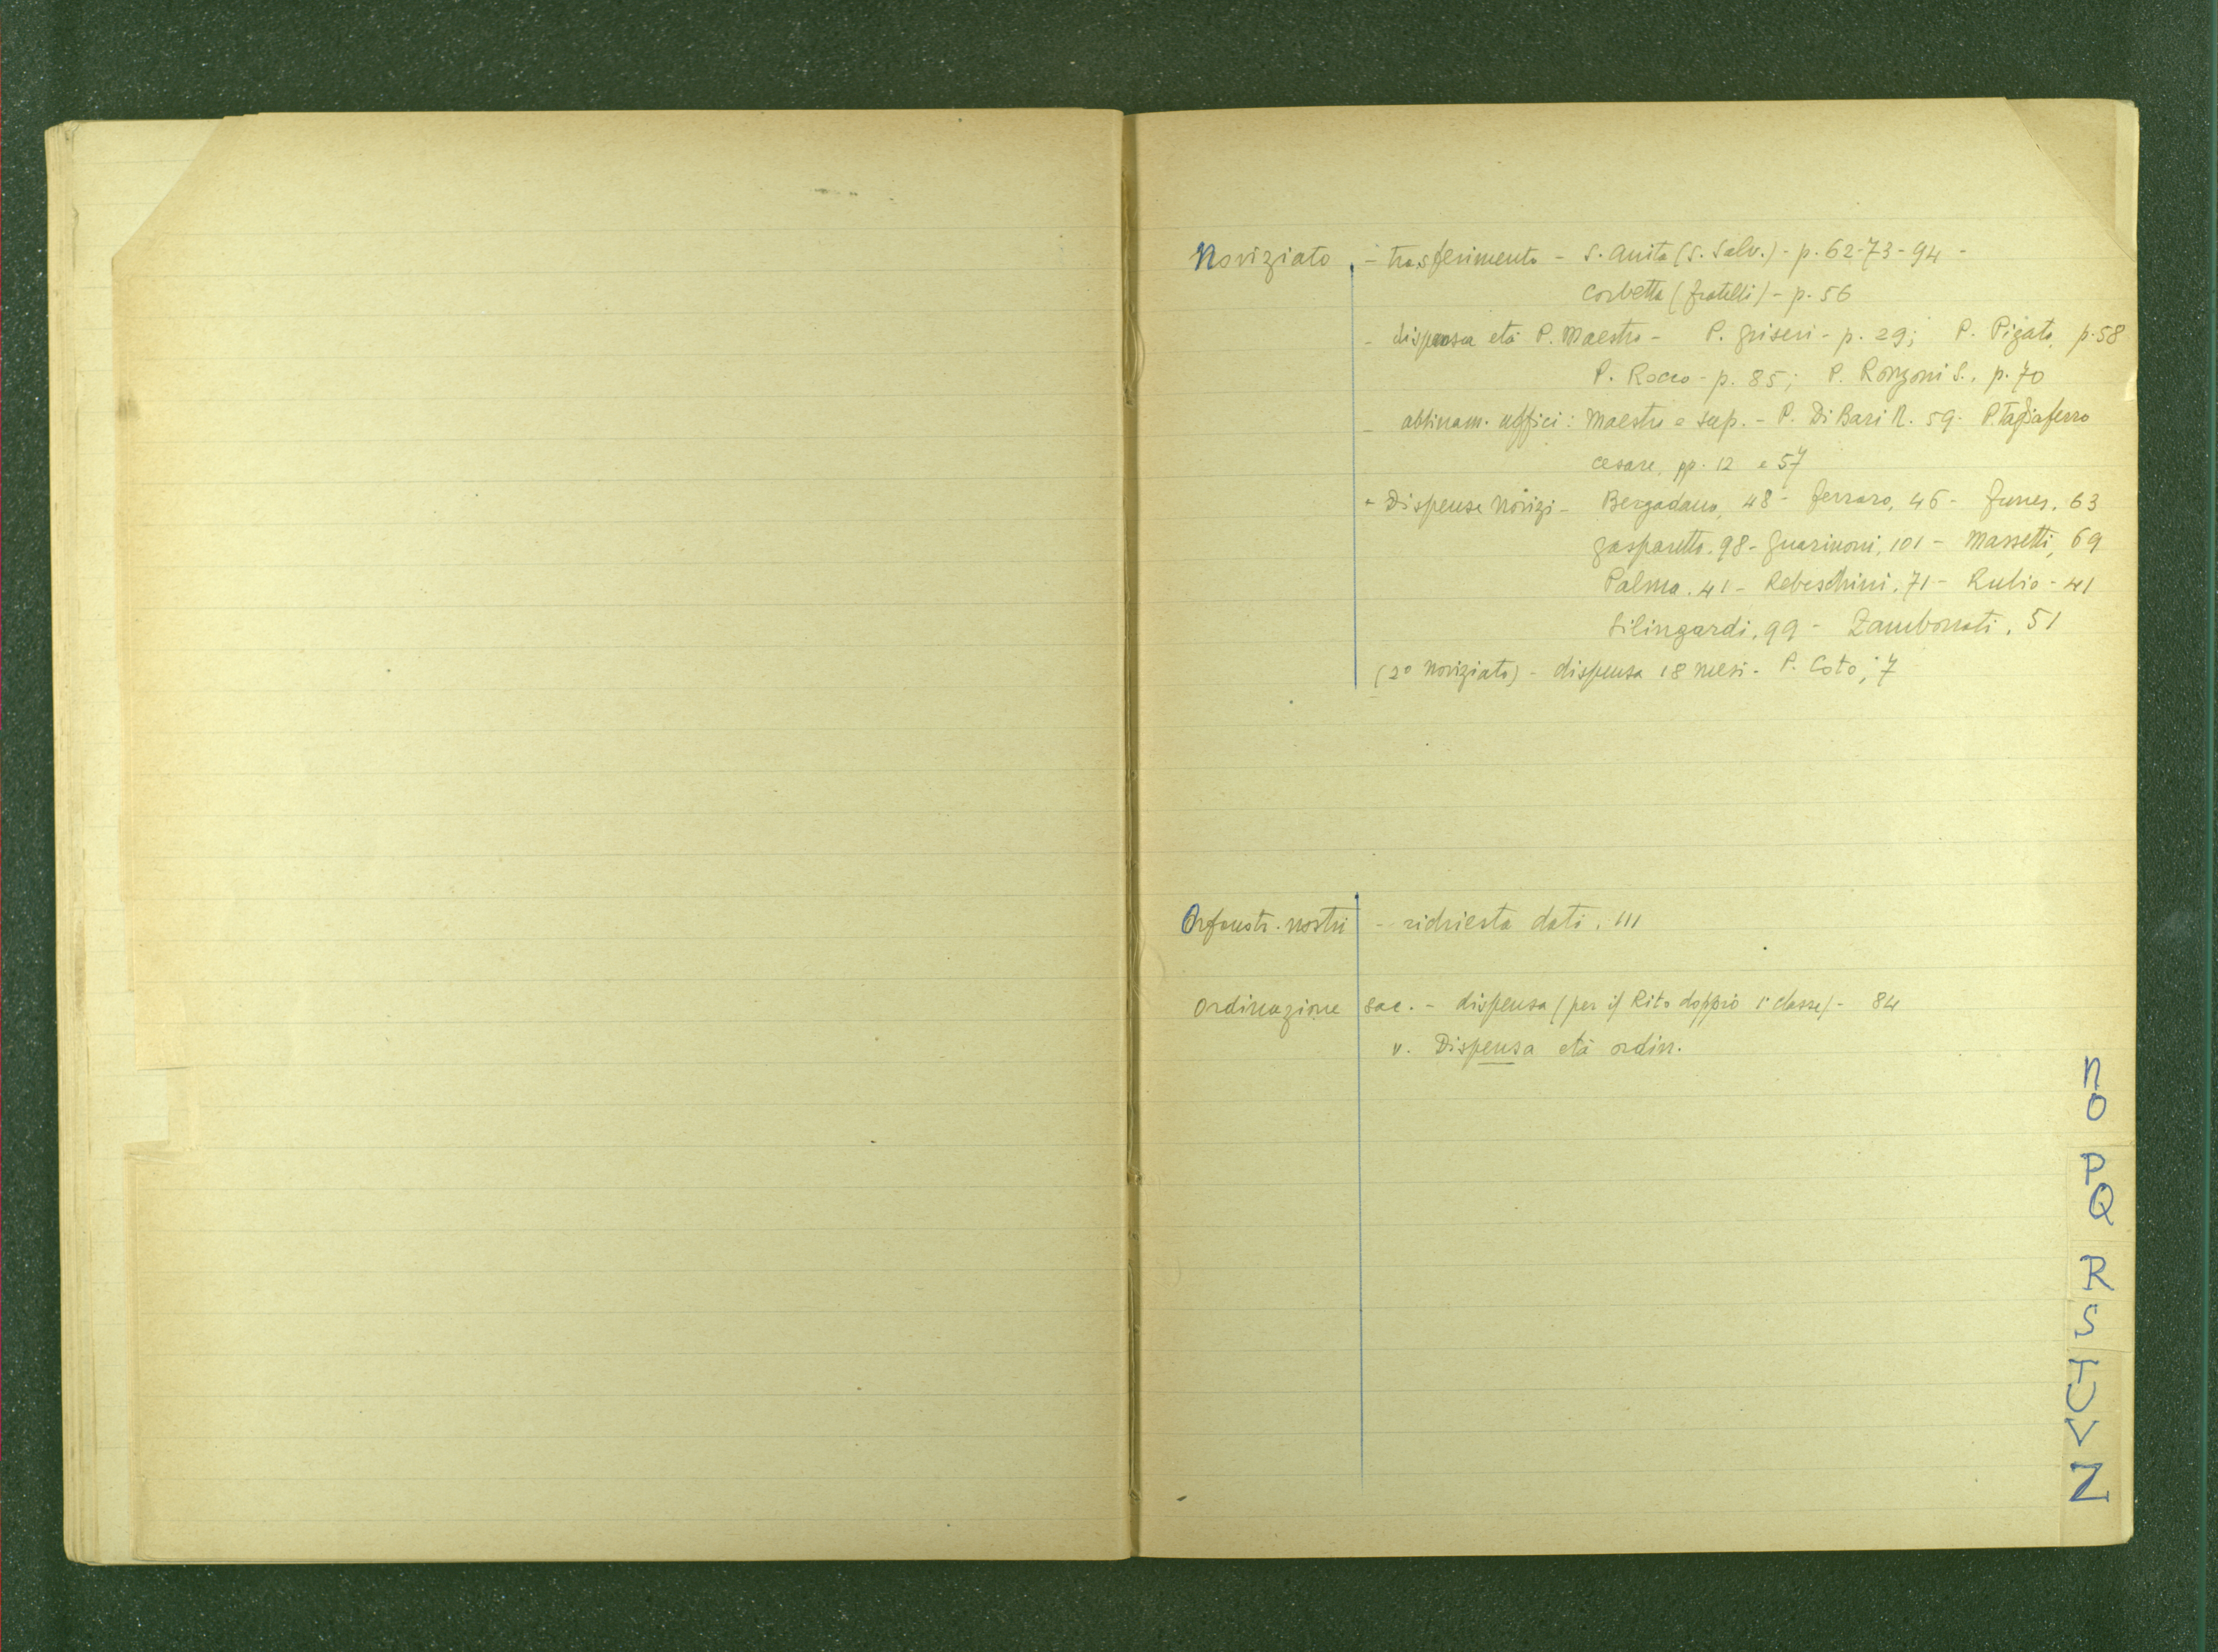 Noviziato - trasferimento - S. Anita (S. Salv.) - p. 62-73-94 -
Corbetta (fratelli) - p. 56
- dispensa età P. Maestro - P. Griseri - p. 29; P. Pigato, p. 58
P. Rocco - p. 85; P. Ronzoni S., p. 70
- abbinam. uffici: Maestro e sup. - P. Di Bari N. 59 - P. Tagliaferro
Cesare, pp. 12 e 57
- Dispense Novizi - Bergadano, 48 - Ferraro, 46 - Funes, 63
Gasparetto, 98 - Guarinoni, 101 - Massetti, 69
Palma, 41 - Rebeschini, 71 - Rubio - 41
Silingardi, 99 - Zambonati, 51
(2° noviziato) - dispensa 18 mesi - P. Coto, 7
Orfanotr. nostri - richiesta dati, 111
Ordinazione sac. - dispensa (per il Rito doppio 1ª classe) - 84
v. Dispensa età ordin.
N
O
P
Q
R
S
T
U
V
Z